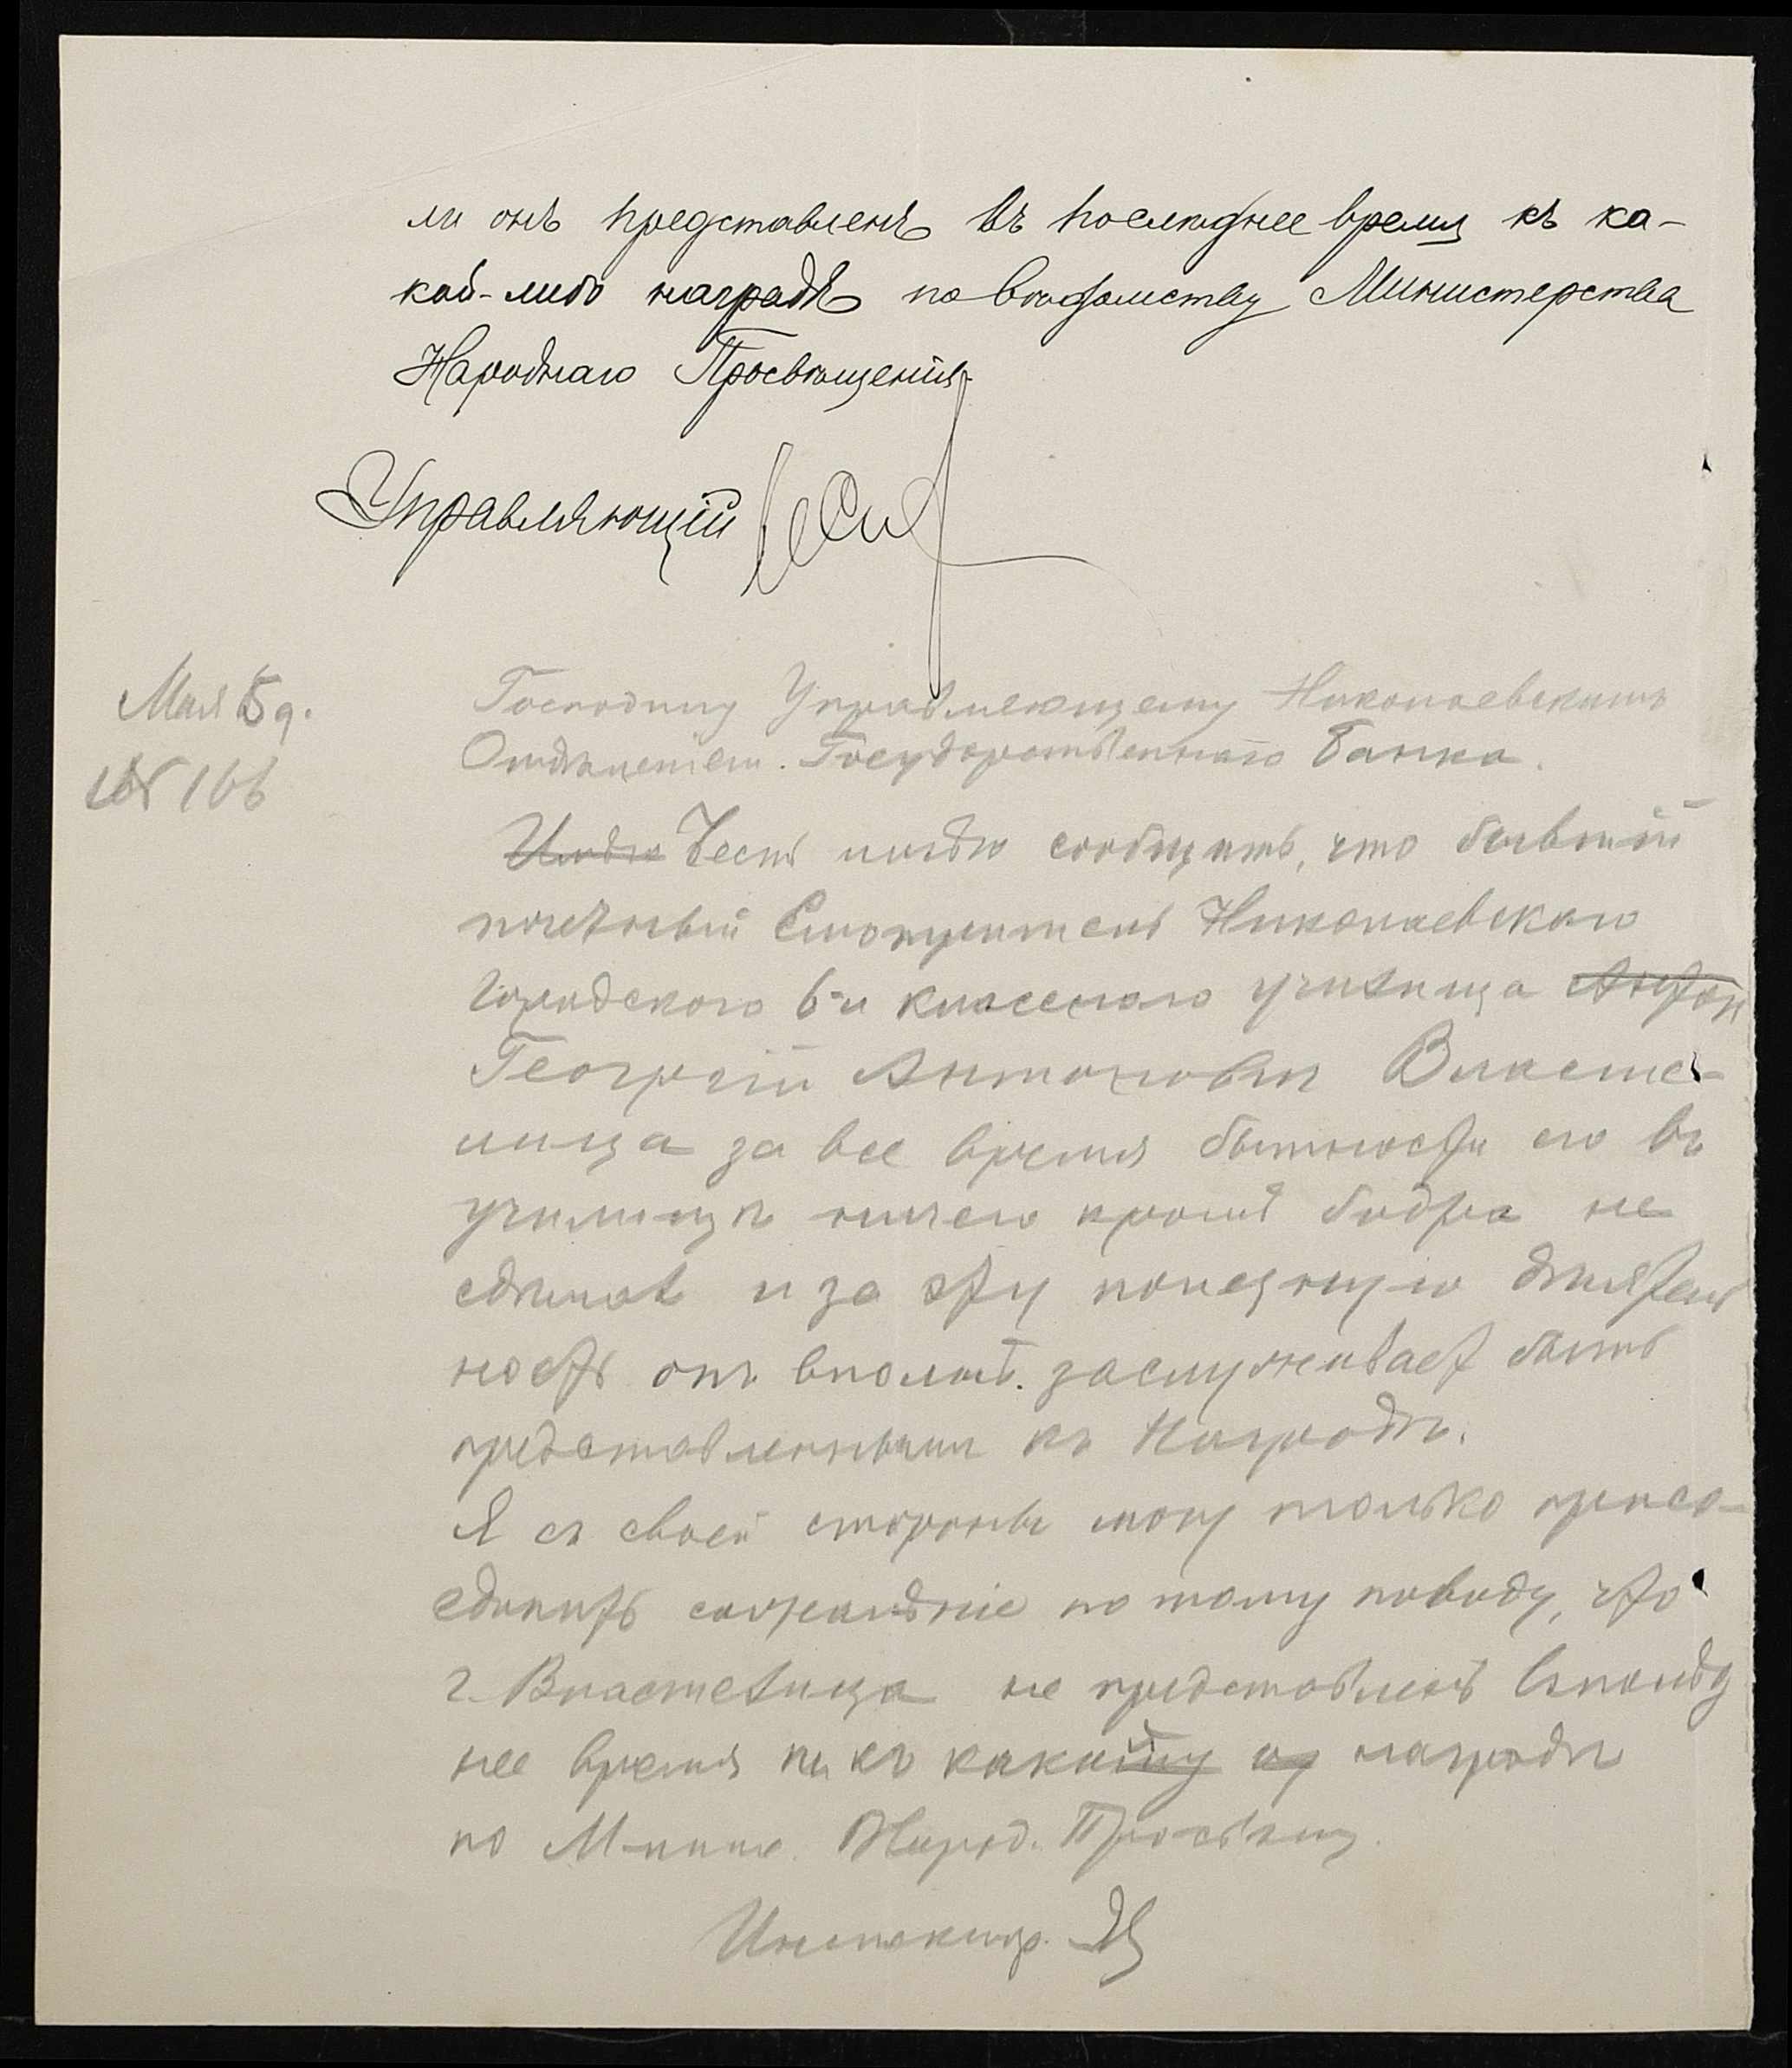 ли онъ представленъ въ последнее время къ ка-
кой-либо наградѣ по вѣдомству Министерства
Народнаго Просвѣщенія.
Управляющій
Мая 5 д.
№ 166
Господину Управляющему Николаевскимъ
Отдѣленіем. Государственнаго Банка.
Имѣю Честь имѣю сообщить, что бывшій
почетный Смотритель Николаевскаго
Городского 6-и класснаго училища Антон
Георгій Антоновичъ Властe-
лица за все время бытности его въ
училищѣ ничего кромѣ бодра не
сдѣлал и за эту полезную дѣятель
ность онъ вполнѣ. заслуживает быть
представленнымъ къ Наградѣ.
Я съ своей стороны могу только присо-
единить сожалѣніе по тому поводу, что
г. Властелица не представленъ въ послѣд
нее время ни къ какой награды
по Минис. Народ. Просвѣщ.
Инспектор.